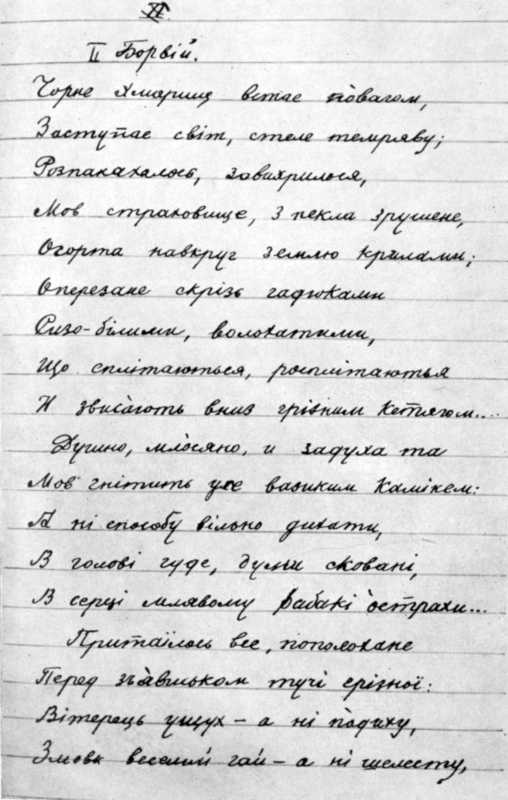 II Борвій.
Чорне хмарище встає по̀вагом,
Заступає світ, стеле темряву;
Розпанахалось, завихрилося,
Мов страховище, з пекла зрушене,
Огорта навкруг землю крилами;
Оперезане скрізь гадюками
Сизо-білими, волохатими,
Що сплітаються, росплітаються
Й звиса̀ють вниз грізним кетягом....
Душно, мло̀сяно, и задуха та
Мов гнітить усе важким камінем:
А ні способу вільно дихати,
В голові гуде, думки сковані,
В серці млявому острахи...
Притаїлось все, пополохане
Перед зъа̀вищком тучі грізної:
Вітерець ущух – а ні по̀диху,
Змовк веселий гай – а ні шелесту,